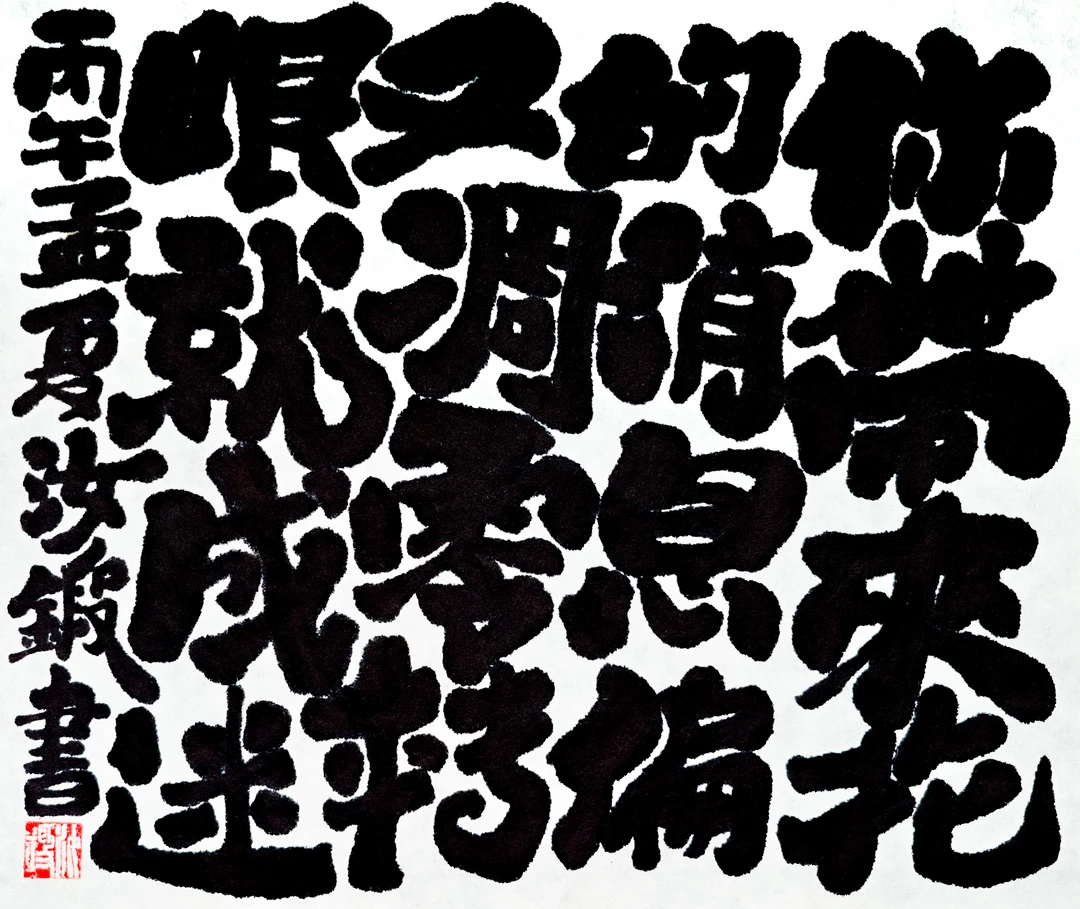 你帶來
的消息偏
又凋零转
眼就成迷
丙午孟夏汝鍛書